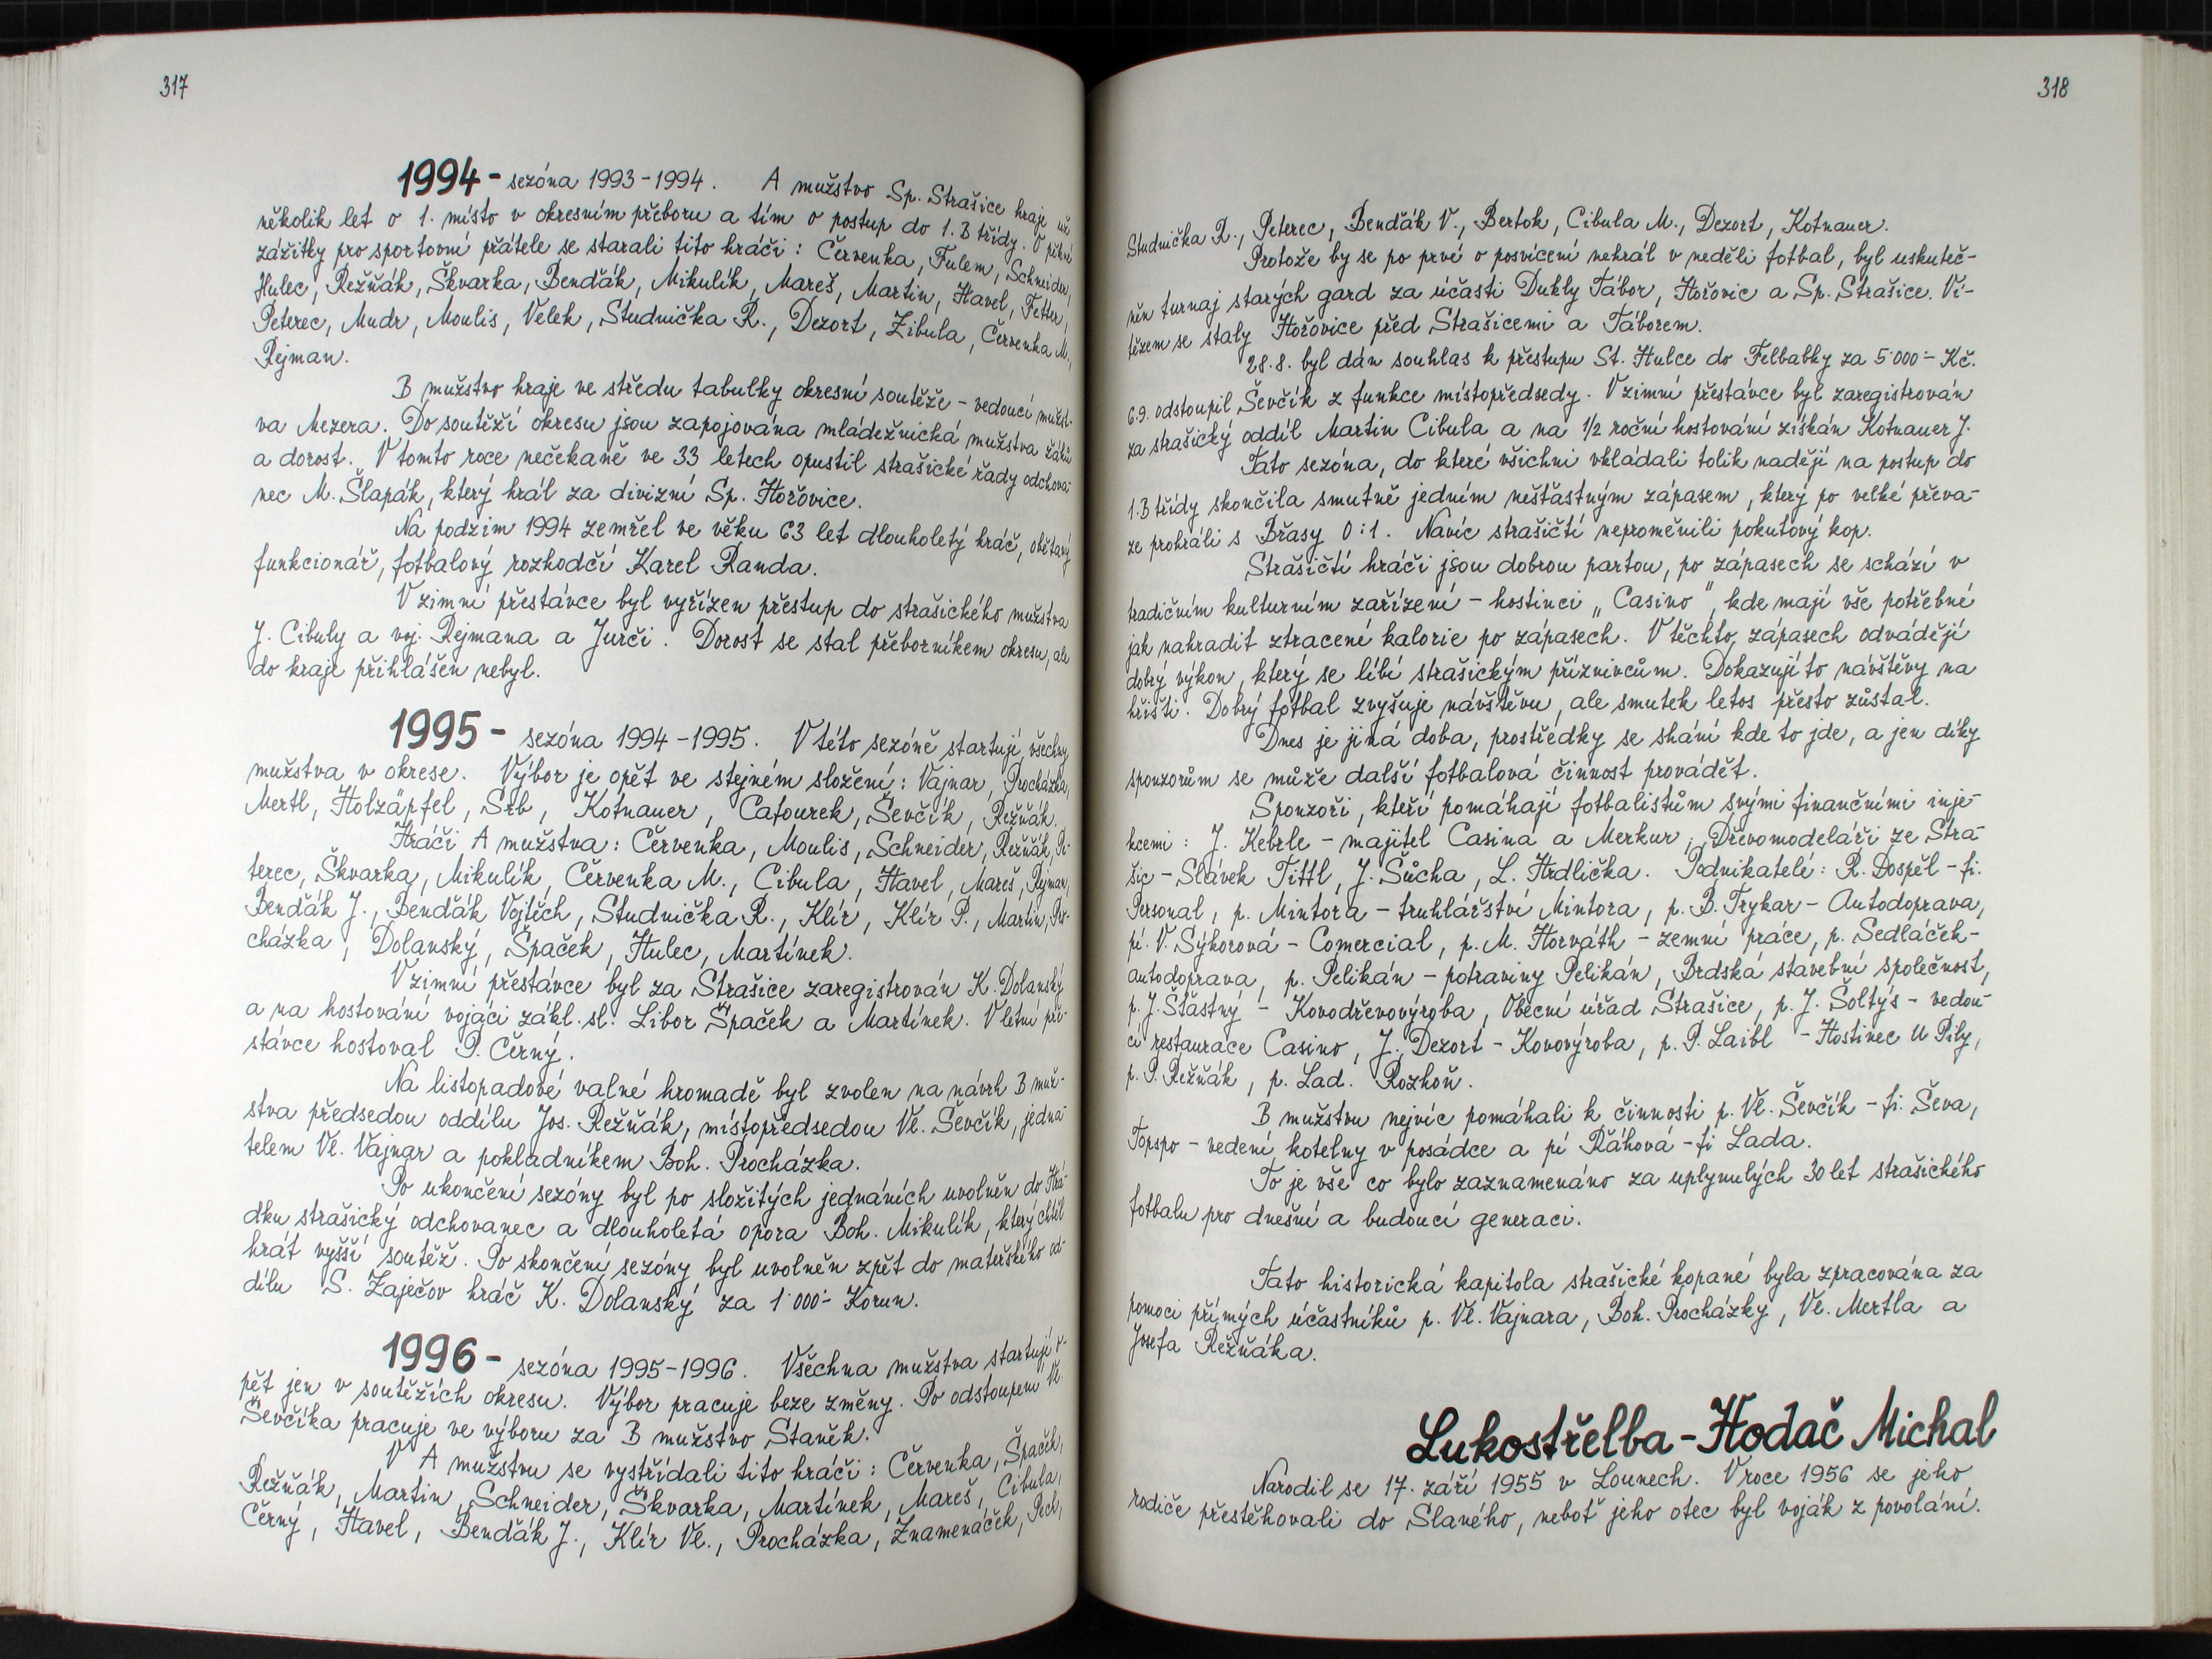 317
1994 - sezóna 1993-1994. A mužstvo Sp. Strašice hraje už
několik let o 1. místo v okresním přeboru a tím o postup do 1. B třídy. O pěkné
zážitky pro sportovní přátele se starali tito hráči: Červenka, Fulem, Schneider,
Hulec, Režňák, Škvarka, Bendšák, Mikulík, Mareš, Martin, Havel, Fetter,
Peterec, Mudr, Moulis, Velek, Studnička R., Dezort, Zibula, Červenka M.,
Rejman.
B mužstvo hraje ve středu tabulky okresní soutěže - vedoucí mužst-
va Mezera. Do soutěží okresu jsou zapojována mládežnická mužstva žáků
a dorost. V tomto roce nečekaně ve 33 letech opustil strašické řady odchova-
nec M. Šlapák, který hrál za divizní Sp. Hořovice.
Na podzim 1994 zemřel ve věku 63 let dlouholetý hráč, obětavý
funkcionář, fotbalový rozhodčí Karel Randa.
V zimní přestávce byl vyřízen přestup do strašického mužstva
J. Cibuly a voj. Rejmana a Jurči. Dorost se stal přeborníkem okresu, ale
do kraje přihlášen nebyl.
1995 - sezóna 1994-1995. V této sezóně startují všechny
mužstva v okrese. Výbor je opět ve stejném složení: Vajnar, Procházka,
Mertl, Holzäpfel, Srb, Kotnauer, Cafourek, Ševčík, Režňák.
Hráči A mužstva: Červenka, Moulis, Schneider, Režňák, Pe-
terec, Škvarka, Mikulík, Červenka M., Cibula, Havel, Mareš, Rejman,
Bendšák J., Bendšák Vojtěch, Studnička R., Klír, Klír P., Martin, Pro-
cházka, Dolanský, Špaček, Hulec, Martínek.
V zimní přestávce byl za Strašice zaregistrován K. Dolanský
a na hostování vojáci zákl. sl. Libor Špaček a Martínek. V letní pře-
stávce hostoval P. Černý.
Na listopadové valné hromadě byl zvolen na návrh B muž-
stva předsedou oddílu Jos. Režňák, místopředsedou Vl. Ševčík, jedna-
telem Vl. Vajnar a pokladníkem Boh. Procházka.
Po ukončení sezóny byl po složitých jednáních uvolněn do Hrá-
dku strašický odchovanec a dlouholetá opora Boh. Mikulík, který chtěl
hrát vyšší soutěž. Po skončení sezóny byl uvolněn zpět do mateřského od-
dílu S. Zaječov hráč K. Dolanský za 1 000,- Korun.
1996 - sezóna 1995-1996. Všechna mužstva startují o-
pět jen v soutěžích okresu. Výbor pracuje beze změny. Po odstoupení Vl.
Ševčíka pracuje ve výboru za B mužstvo Staněk.
V A mužstvu se vystřídali tito hráči: Červenka, Špaček,
Režňák, Martin, Schneider, Škvarka, Martínek, Mareš, Cibula,
Černý, Havel, Bendšák J., Klír Vl., Procházka, Znamenáček, Pech,
318
Studnička R., Peterec, Bendšák V., Bertok, Cibula M., Dezort, Kotnauer.
Protože by se po prvé o posvícení nehrál v neděli fotbal, byl uskuteč-
něn turnaj starých gard za účasti Dukly Tábor, Hořovic a Sp. Strašice. Ví-
tězem se staly Hořovice před Strašicemi a Táborem.
28.8. byl dán souhlas k přestupu St. Hulce do Felbabky za 5 000,- Kč.
6.9. odstoupil Ševčík z funkce místopředsedy. V zimní přestávce byl zaregistrován
za strašický oddíl Martin Cibula a na 1/2 roční hostování získán Kotnauer J.
Tato sezóna, do které všichni vkládali tolik nadějí na postup do
1. B třídy skončila smutně jedním nešťastným zápasem, který po velké převa-
ze prohráli s Břasy 0:1. Navíc strašičtí neproměnili pokutový kop.
Strašičtí hráči jsou dobrou partou, po zápasech se schází v
tradičním kulturním zařízení - hostinci „Casino", kde mají vše potřebné
jak nahradit ztracené kalorie po zápasech. V těchto zápasech odvádějí
dobrý výkon, který se líbí strašickým příznivcům. Dokazují to návštěvy na
hřišti. Dobrý fotbal zvyšuje návštěvu, ale smutek letos přesto zůstal.
Dnes je jiná doba, prostředky se shání kde to jde, a jen díky
sponzorům se může další fotbalová činnost provádět.
Sponzoři, kteří pomáhají fotbalistům svými finančními inje-
kcemi: J. Kebrle - majitel Casina a Merkur, Dřevomodeláři ze Stra-
šic - Slávek Tittl, J. Šůcha, L. Hrdlička. Podnikatelé: R. Dospěl - fi.
Personal, p. Mintora - truhlářství Mintora, p. B. Trykar - Autodoprava,
pí. V. Sýkorová - Comercial, p. M. Horváth - zemní práce, p. Sedláček -
autodoprava, p. Pelikán - potraviny Pelikán, Brdská stavební společnost,
p. J. Šťastný - Kovodřevovýroba, Obecní úřad Strašice, p. J. Šoltýs - vedou-
cí restaurace Casino, J. Dezort - Kovovýroba, p. P. Laibl - Hostinec U Pily,
p. P. Režňák, p. Lad. Rozhoň.
B mužstvu nejvíc pomáhali k činnosti p. Vl. Ševčík - fi. Ševa,
Topspo - vedení kotelny v posádce a pí Ráhová - fi Lada.
To je vše co bylo zaznamenáno za uplynulých 30 let strašického
fotbalu pro dnešní a budoucí generaci.
Tato historická kapitola strašické kopané byla zpracována za
pomoci přímých účastníků p. Vl. Vajnara, Boh. Procházky, Vl. Mertla a
Josefa Režňáka.
Lukostřelba - Hodač Michal
Narodil se 17. září 1955 v Lounech. V roce 1956 se jeho
rodiče přestěhovali do Slaného, neboť jeho otec byl voják z povolání.